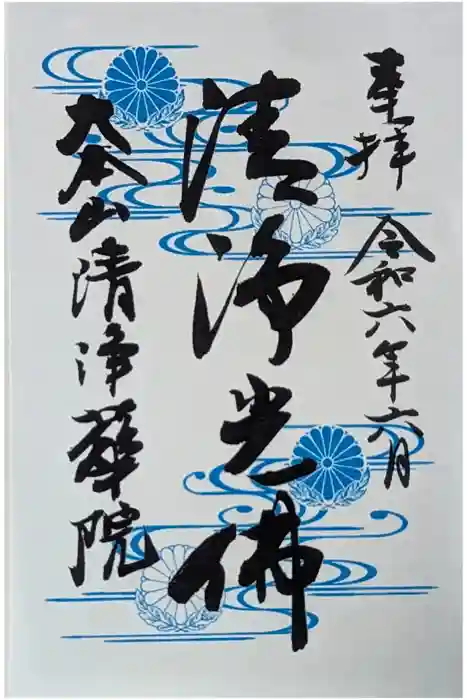 奉拝 令和六年六月
清浄光佛
大本山清浄華院